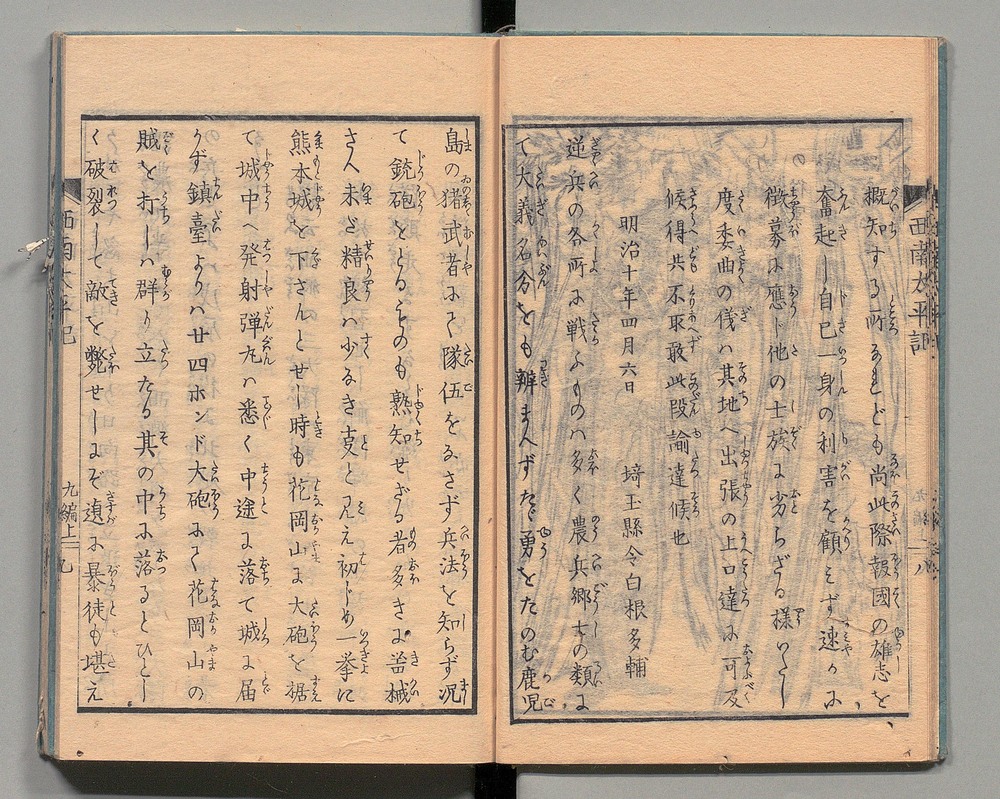 西南太平記
八
概知する所なれども尚此際報國の雄志を
奮起し自己一身の利害を顧みず速かに
徴募に應じ他の士族に劣らざる様いたし
度委曲の儀ハ其地へ出張の上口達に可及
候得共不取敢此段諭達候也
明治十年四月六日
埼玉縣令白根多輔
逆兵の各所に戦ふものハ多く農兵郷士の類に
て大義名分をも辨まへずたゞ勇をたのむ鹿児
島の猪武者にて隊伍をなさず兵法を知らず况
て銃砲をとるものも熟知せざる者多きに噐械
さへ未だ精良ハ少なき克と見え初じめ一挙に
熊本城を下さんとせし時も花岡山に大砲を据
て城中へ発射弾丸ハ悉く中途に落て城に届
かず鎮臺よりハ廿四ホンド大砲にて花岡山の
賊を打しハ群り立たる其の中に落るとひとし
く破裂して敵を斃せしにぞ遉に暴徒も堪え
西南太平記
九編上
九